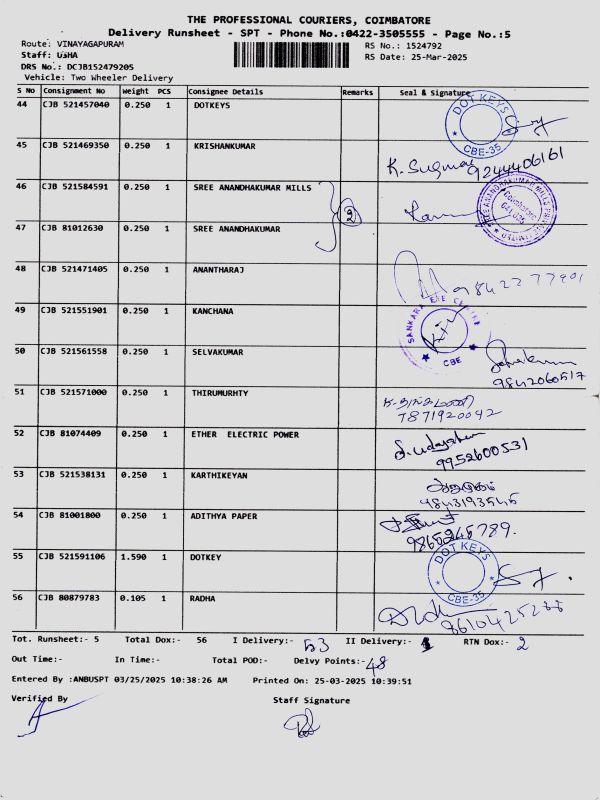 THE PROFESSIONAL COURIERS, COIMBATORE
Delivery Runsheet - SPT - Phone No.:0422-3505555 - Page No.:5
Route: VINAYAGAPURAM RS No.: 1524792
Staff: USHA RS Date: 25-Mar-2025
DRS No.: DCJB152479205
Vehicle: Two Wheeler Delivery
S No Consignment No Weight PCS Consignee Details Remarks Seal & Signature
44 CJB 521457040 0.250 1 DOTKEYS DOT KEYS CBE-35
45 CJB 521469350 0.250 1 KRISHANKUMAR K. Sugumar 9244406161
46 CJB 521584591 0.250 1 SREE ANANDHAKUMAR MILLS 2
47 CJB 81012630 0.250 1 SREE ANANDHAKUMAR
48 CJB 521471405 0.250 1 ANANTHARAJ
49 CJB 521551901 0.250 1 KANCHANA SANKARA EYE CENTRE CBE
50 CJB 521561558 0.250 1 SELVAKUMAR 9842060517
51 CJB 521571000 0.250 1 THIRUMURHTY 7871920042
52 CJB 81074409 0.250 1 ETHER ELECTRIC POWER 9952600531
53 CJB 521538131 0.250 1 KARTHIKEYAN 9843193545
54 CJB 81001800 0.250 1 ADITHYA PAPER
55 CJB 521591106 1.590 1 DOTKEY DOT KEYS CBE-35
56 CJB 80879783 0.105 1 RADHA
Tot. Runsheet:- 5 Total Dox:- 56 I Delivery:- 53 II Delivery:- RTN Dox:- 2
Out Time:- In Time:- Total POD:- Delvy Points:- 48
Entered By :ANBUSPT 03/25/2025 10:38:26 AM Printed On: 25-03-2025 10:39:51
Verified By Staff Signature